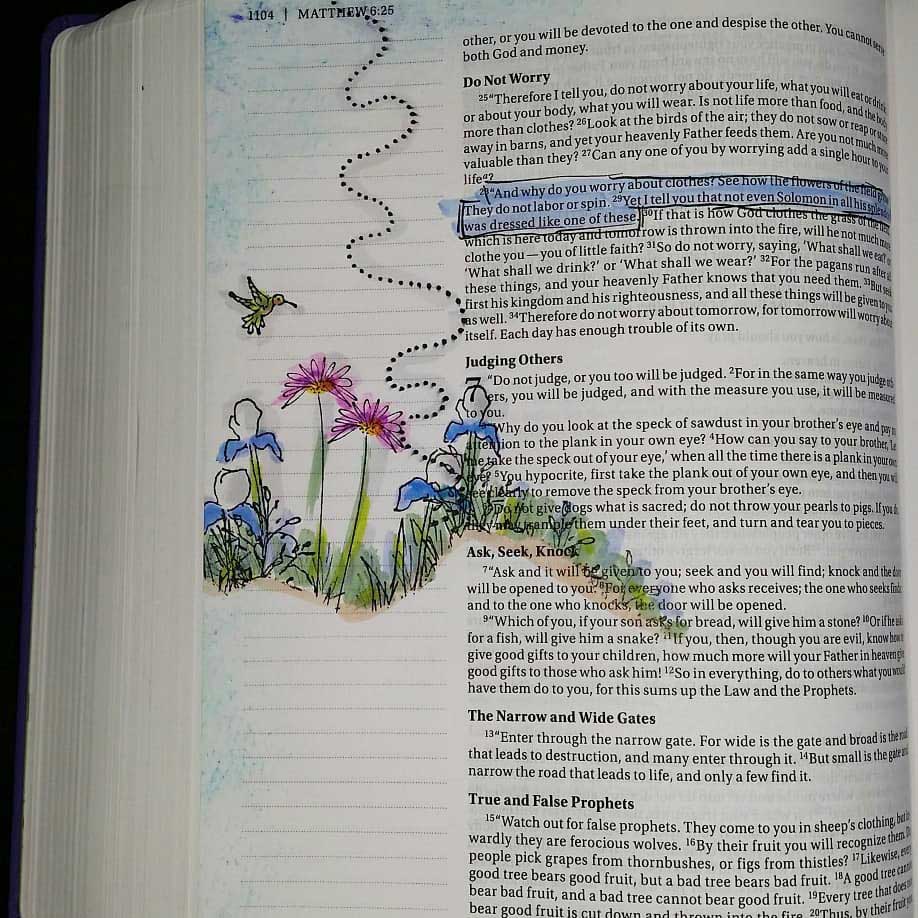 1104 | MATTHEW 6:25
other, or you will be devoted to the one and despise the other. You cannot serve
both God and money.
Do Not Worry
25 “Therefore I tell you, do not worry about your life, what you will eat or drink;
or about your body, what you will wear. Is not life more than food, and the body
more than clothes? 26 Look at the birds of the air; they do not sow or reap or store
away in barns, and yet your heavenly Father feeds them. Are you not much more
valuable than they? 27 Can any one of you by worrying add a single hour to your
life a?
28 “And why do you worry about clothes? See how the flowers of the field grow.
They do not labor or spin. 29 Yet I tell you that not even Solomon in all his splendor
was dressed like one of these. 30 If that is how God clothes the grass of the field,
which is here today and tomorrow is thrown into the fire, will he not much more
clothe you—you of little faith? 31 So do not worry, saying, ‘What shall we eat?’ or
‘What shall we drink?’ or ‘What shall we wear?’ 32 For the pagans run after all
these things, and your heavenly Father knows that you need them. 33 But seek
first his kingdom and his righteousness, and all these things will be given to you
as well. 34 Therefore do not worry about tomorrow, for tomorrow will worry about
itself. Each day has enough trouble of its own.
Judging Others
7 “Do not judge, or you too will be judged. 2 For in the same way you judge oth
ers, you will be judged, and with the measure you use, it will be measured
to you.
Why do you look at the speck of sawdust in your brother’s eye and pay no
attention to the plank in your own eye? 4 How can you say to your brother, ‘Let
me take the speck out of your eye,’ when all the time there is a plank in your own
eye? 5 You hypocrite, first take the plank out of your own eye, and then you will
see clearly to remove the speck from your brother’s eye.
“Do not give dogs what is sacred; do not throw your pearls to pigs. If you do,
they may trample them under their feet, and turn and tear you to pieces.
Ask, Seek, Knock
7 “Ask and it will be given to you; seek and you will find; knock and the door
will be opened to you. 8 For everyone who asks receives; the one who seeks finds;
and to the one who knocks, the door will be opened.
9 “Which of you, if your son asks for bread, will give him a stone? 10 Or if he asks
for a fish, will give him a snake? 11 If you, then, though you are evil, know how to
give good gifts to your children, how much more will your Father in heaven give
good gifts to those who ask him! 12 So in everything, do to others what you would
have them do to you, for this sums up the Law and the Prophets.
The Narrow and Wide Gates
13 “Enter through the narrow gate. For wide is the gate and broad is the road
that leads to destruction, and many enter through it. 14 But small is the gate and
narrow the road that leads to life, and only a few find it.
True and False Prophets
15 “Watch out for false prophets. They come to you in sheep’s clothing, but in
wardly they are ferocious wolves. 16 By their fruit you will recognize them. Do
people pick grapes from thornbushes, or figs from thistles? 17 Likewise, every
good tree bears good fruit, but a bad tree bears bad fruit. 18 A good tree cannot
bear bad fruit, and a bad tree cannot bear good fruit. 19 Every tree that does not
bear good fruit is cut down and thrown into the fire. 20 Thus, by their fruit you